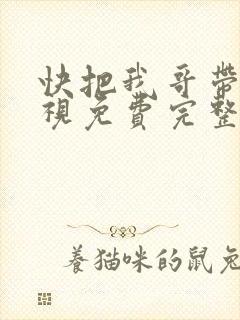 快把我哥帶
視免費完整
養猫咪的鼠兔